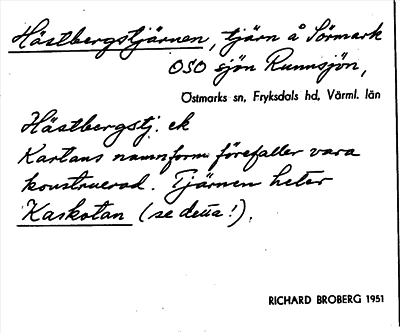 Hästbergstjärnen, tjärn å Sörmark
OSO sjön Runnsjön,
Östmarks sn, Fryksdals hd, Värml. län
Hästbergstj. ek
Kartans namnform förefaller vara
konstruerad. Tjärnen heter
Kaskotan (se detta!).
RICHARD BROBERG 1951